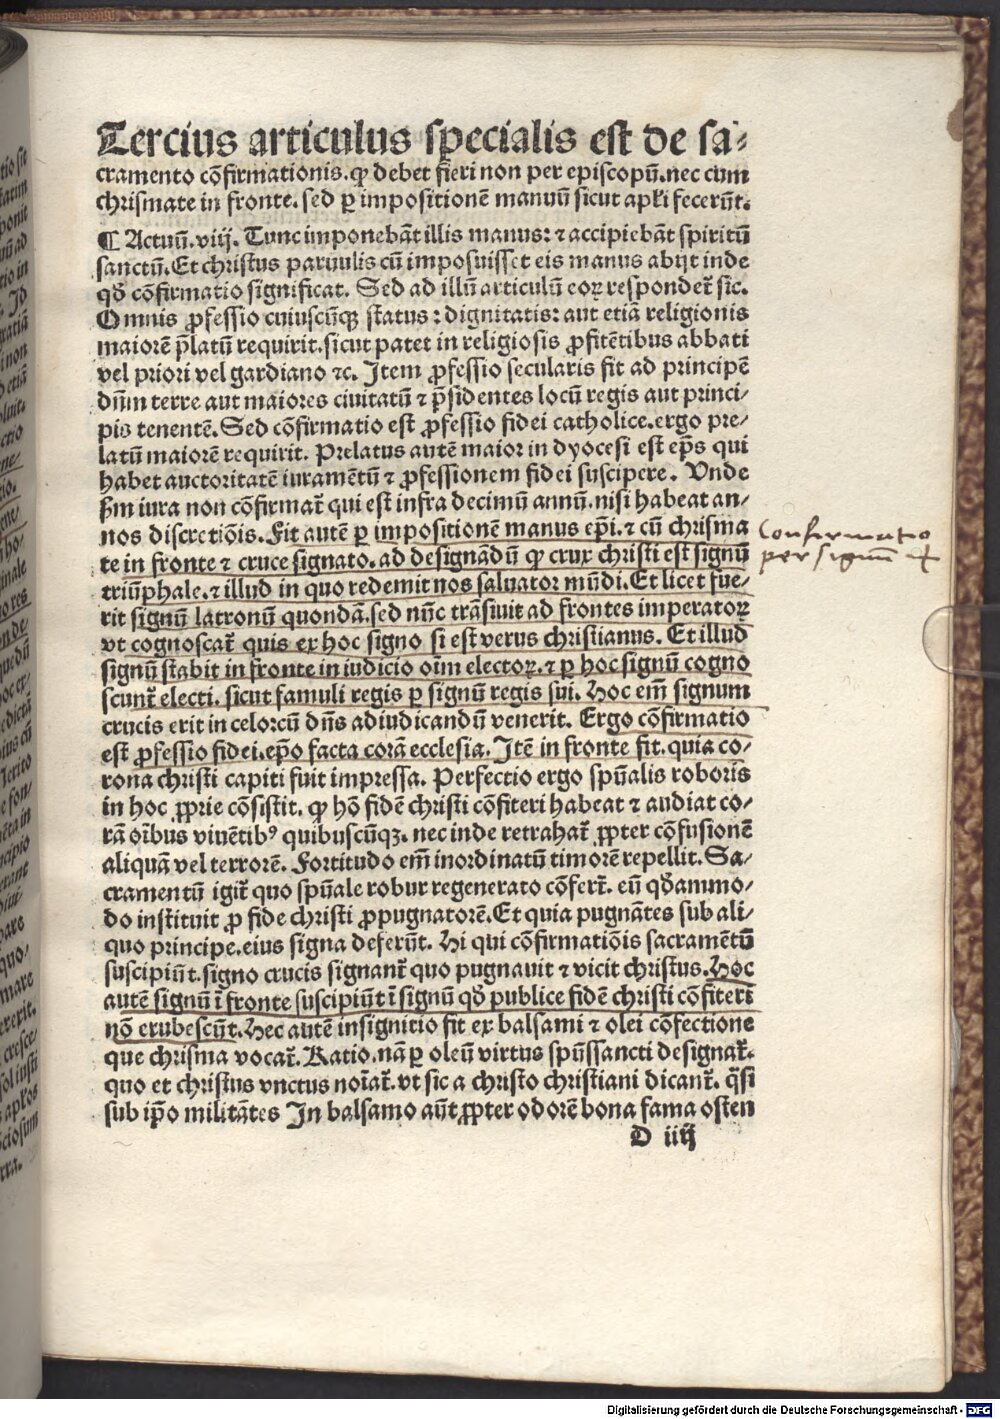 Tercius articulus specialis est de sa⸗
cramento cōfirmationis. ꝙ debet fieri non per episcopū. nec cum
chrismate in fronte. sed ꝑ impositionē manuū sicut apl̄i fecerūt.
¶ Actuū. viij. Tunc imponebāt illis manus: ⁊ accipiebāt spiritū
sanctū. Et christus paruulis cū imposuisset eis manus abijt inde
qd̄ cōfirmatio significat. Sed ad illū articulū eoꝝ respondet᷑ sic.
Omnis ꝓfessio cuiuscūqꝫ status: dignitatis: aut etiā religionis
maiorē p̄latū requirit. sicut patet in religiosis ꝓfitētibus abbati
vel priori vel gardiano ⁊c. Item ꝓfessio secularis fit ad principē
dn̄m terre aut maiores ciuitatū ⁊ p̄sidentes locū regis aut princi⸗
pis tenentē. Sed cōfirmatio est ꝓfessio fidei catholice. ergo pre⸗
latū maiorē requirit. Prelatus autē maior in dyocesi est ep̄s qui
habet auctoritatē iuramētū ⁊ ꝓfessionem fidei suscipere. Vnde
ẜm iura non cōfirmat᷑ qui est infra decimū annū. nisi habeat an⸗
nos discretiōis. Fit autē ꝑ impositionē manus ep̄i. ⁊ cū chrisma
te in fronte ⁊ cruce signato. ad designādū ꝙ crux christi est signū
triūphale. ⁊ illud in quo redemit nos saluator mūdi. Et licet fue⸗
rit signū latronū quondā. sed nūc trāsiuit ad frontes imperatoꝝ
vt cognoscat᷑ quis ex hoc signo si est verus christianus. Et illud
signū stabit in fronte in iudicio oīm electoꝝ. ⁊ ꝑ hoc signū cogno
scunt᷑ electi. sicut famuli regis ꝑ signū regis sui. Hoc em̄ signum
crucis erit in celo: cū dn̄s ad iudicandū venerit. Ergo cōfirmatio
est ꝓfessio fidei. ep̄o facta corā ecclesia. Itē in fronte fit. quia co⸗
rona christi capiti fuit impressa. Perfectio ergo sp̄ualis roboris
in hoc ꝓprie cōsistit. ꝙ hō fidē christi cōfiteri habeat ⁊ audiat co⸗
rā oībus viuētibꝰ quibuscūqꝫ. nec inde retrahat᷑ ꝓpter cōfusionē
aliquā vel terrorē. Fortitudo em̄ inordinatū timorē repellit. Sa⸗
cramentū igit᷑ quo sp̄uale robur regenerato cōfert᷑. eū qd̄ammo⸗
do instituit ꝓ fide christi ꝓpugnatorē. Et quia pugnātes sub ali⸗
quo principe. eius signa deferūt. Hi qui cōfirmatiōis sacramētū
suscipiūt. signo crucis signant᷑ quo pugnauit ⁊ vicit christus. Hoc
autē signū ī fronte suscipiūt ī signū qd̄ publice fidē christi cōfiteri
nō erubescūt. Hec autē insignitio fit ex balsami ⁊ olei cōfectione
que chrisma vocat᷑. Ratio. nā ꝑ oleū virtus sp̄ussancti designat᷑.
quo et christus vnctus noīat᷑. vt sic a christo christiani dicant᷑. q̄si
sub ip̄o militātes In balsamo aūt ꝓpter odorē bona fama osten
D iiij
Confirmatio
per signum +
Digitalisierung gefördert durch die Deutsche Forschungsgemeinschaft - DFG